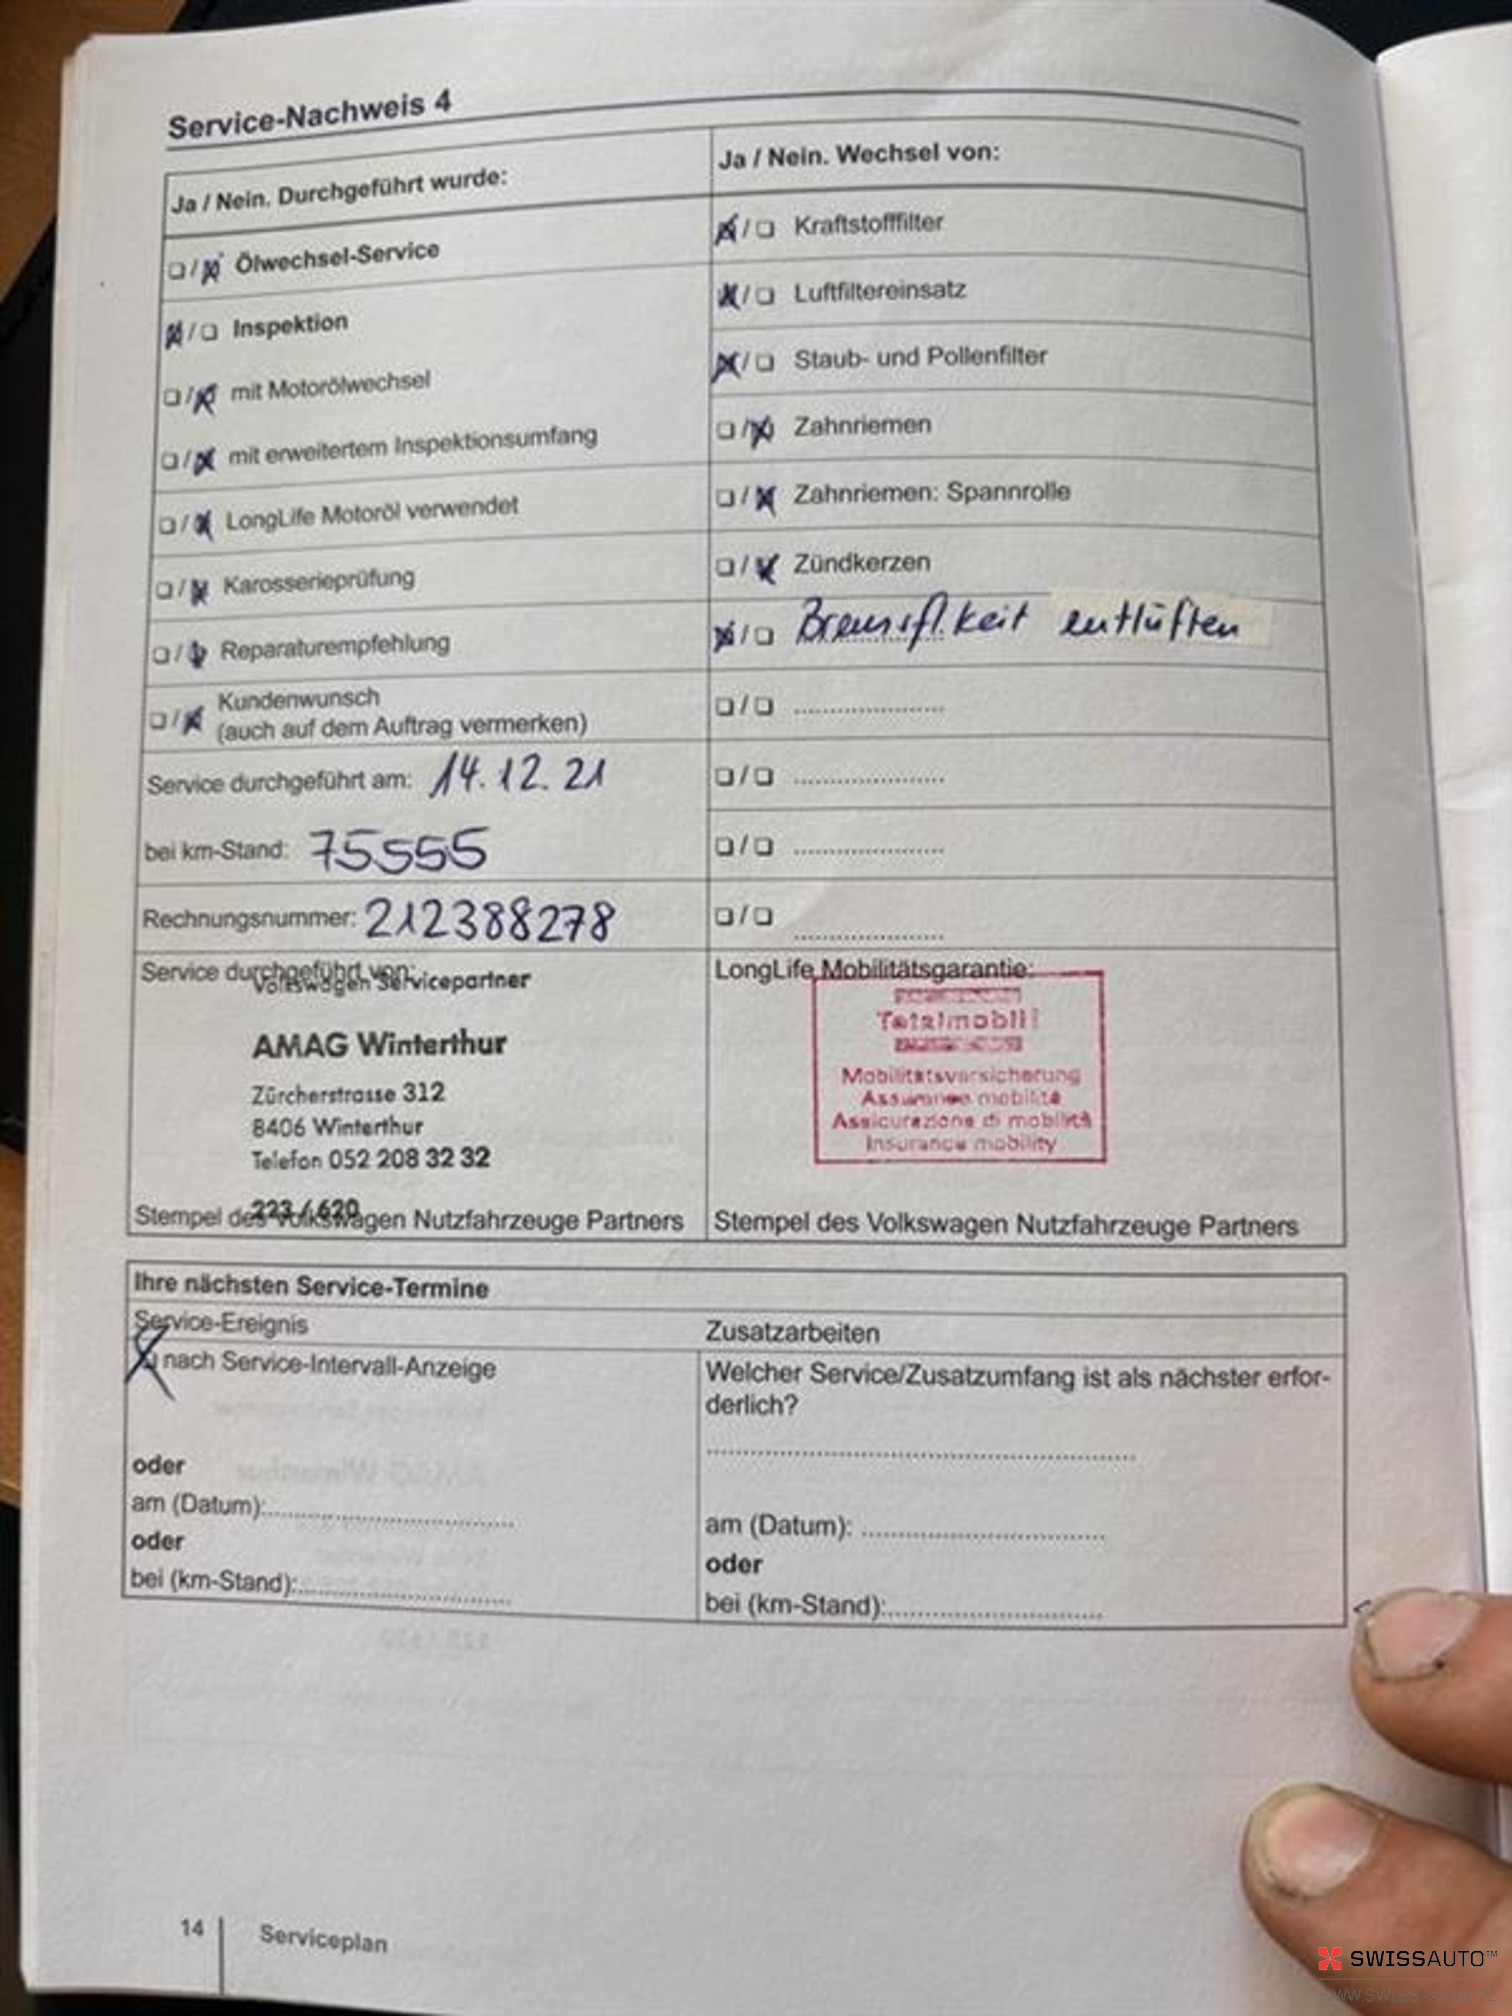 Service-Nachweis 4
Ja / Nein. Durchgeführt wurde:
❏ / ☒ Ölwechsel-Service
☒ / ❏ Inspektion
❏ / ☒ mit Motorölwechsel
❏ / ☒ mit erweitertem Inspektionsumfang
❏ / ☒ LongLife Motoröl verwendet
❏ / ☒ Karosserieprüfung
❏ / ☒ Reparaturempfehlung
❏ / ☒ Kundenwunsch
(auch auf dem Auftrag vermerken)
Service durchgeführt am: 14.12.21
bei km-Stand: 75555
Rechnungsnummer: 212388278
Service durchgeführt von:
Volkswagen Servicepartner
AMAG Winterthur
Zürcherstrasse 312
8406 Winterthur
Telefon 052 208 32 32
223 / 620
Stempel des Volkswagen Nutzfahrzeuge Partners
Ja / Nein. Wechsel von:
☒ / ❏ Kraftstofffilter
☒ / ❏ Luftfiltereinsatz
☒ / ❏ Staub- und Pollenfilter
❏ / ☒ Zahnriemen
❏ / ☒ Zahnriemen: Spannrolle
❏ / ☒ Zündkerzen
☒ / ❏ Bremsfl.keit entlüften
❏ / ❏ .....................
❏ / ❏ .....................
❏ / ❏ .....................
❏ / ❏ .....................
LongLife Mobilitätsgarantie:
Totalmobil!
Mobilitätsversicherung
Assurance mobilité
Assicurazione di mobilità
Insurance mobility
Stempel des Volkswagen Nutzfahrzeuge Partners
Ihre nächsten Service-Termine
Service-Ereignis
☒ nach Service-Intervall-Anzeige
oder
am (Datum):
oder
bei (km-Stand):
Zusatzarbeiten
Welcher Service/Zusatzumfang ist als nächster erfor-
derlich?
am (Datum):
oder
bei (km-Stand):
14 Serviceplan
SWISSAUTO™